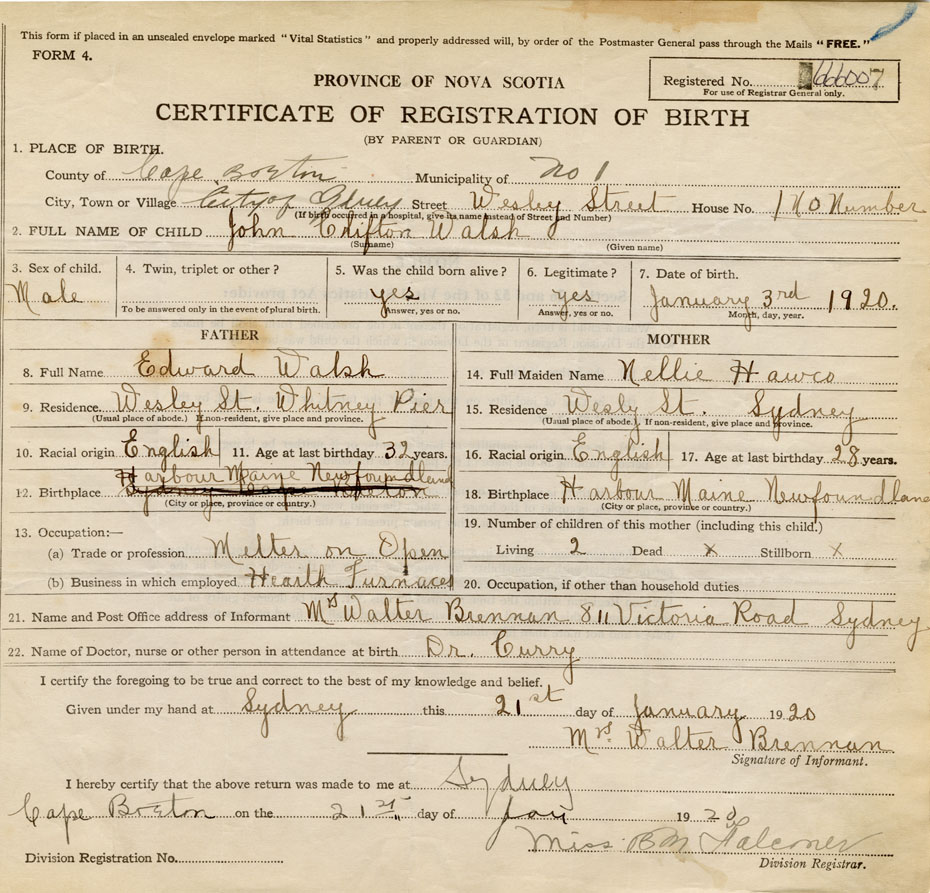 This form if placed in an unsealed envelope marked "Vital Statistics" and properly addressed will, by order of the Postmaster General pass through the Mails "FREE."
FORM 4.
PROVINCE OF NOVA SCOTIA
Registered No. 666007
For use of Registrar General only.
CERTIFICATE OF REGISTRATION OF BIRTH
(BY PARENT OR GUARDIAN)
1. PLACE OF BIRTH.
County of Cape Breton Municipality of No 1
City, Town or Village City of Sydney Street Wesley Street House No. No Number
(If birth occurred in a hospital, give its name instead of Street and Number)
2. FULL NAME OF CHILD John Clifton Walsh
(Surname) (Given name)
3. Sex of child. 4. Twin, triplet or other? 5. Was the child born alive? 6. Legitimate? 7. Date of birth.
Male yes yes January 3rd 1920.
To be answered only in the event of plural birth. Answer, yes or no. Answer, yes or no. Month, day, year.
FATHER MOTHER
8. Full Name Edward Walsh
14. Full Maiden Name Nellie Hawco
9. Residence Wesley St. Whitney Pier
(Usual place of abode.) If non-resident, give place and province.
15. Residence Wesly St. Sydney
(Usual place of abode.) If non-resident, give place and province.
10. Racial origin English 11. Age at last birthday 32 years.
16. Racial origin English 17. Age at last birthday 28 years.
Harbour Maine Newfoundland
12. Birthplace Sydney Cape Breton
(City or place, province or country.)
18. Birthplace Harbour Maine Newfoundland
(City or place, province or country.)
13. Occupation:—
(a) Trade or profession Melter on Open
(b) Business in which employed Hearth Furnaces
19. Number of children of this mother (including this child.)
Living 2 Dead x Stillborn x
20. Occupation, if other than household duties
21. Name and Post Office address of Informant Mrs Walter Brennan 811 Victoria Road Sydney
22. Name of Doctor, nurse or other person in attendance at birth Dr. Curry
I certify the foregoing to be true and correct to the best of my knowledge and belief.
Given under my hand at Sydney this 21st day of January 1920
Mrs. Walter Brennan
Signature of Informant.
I hereby certify that the above return was made to me at Sydney
Cape Breton on the 21st day of Jan 1920
Miss BM Falconer
Division Registrar.
Division Registration No.